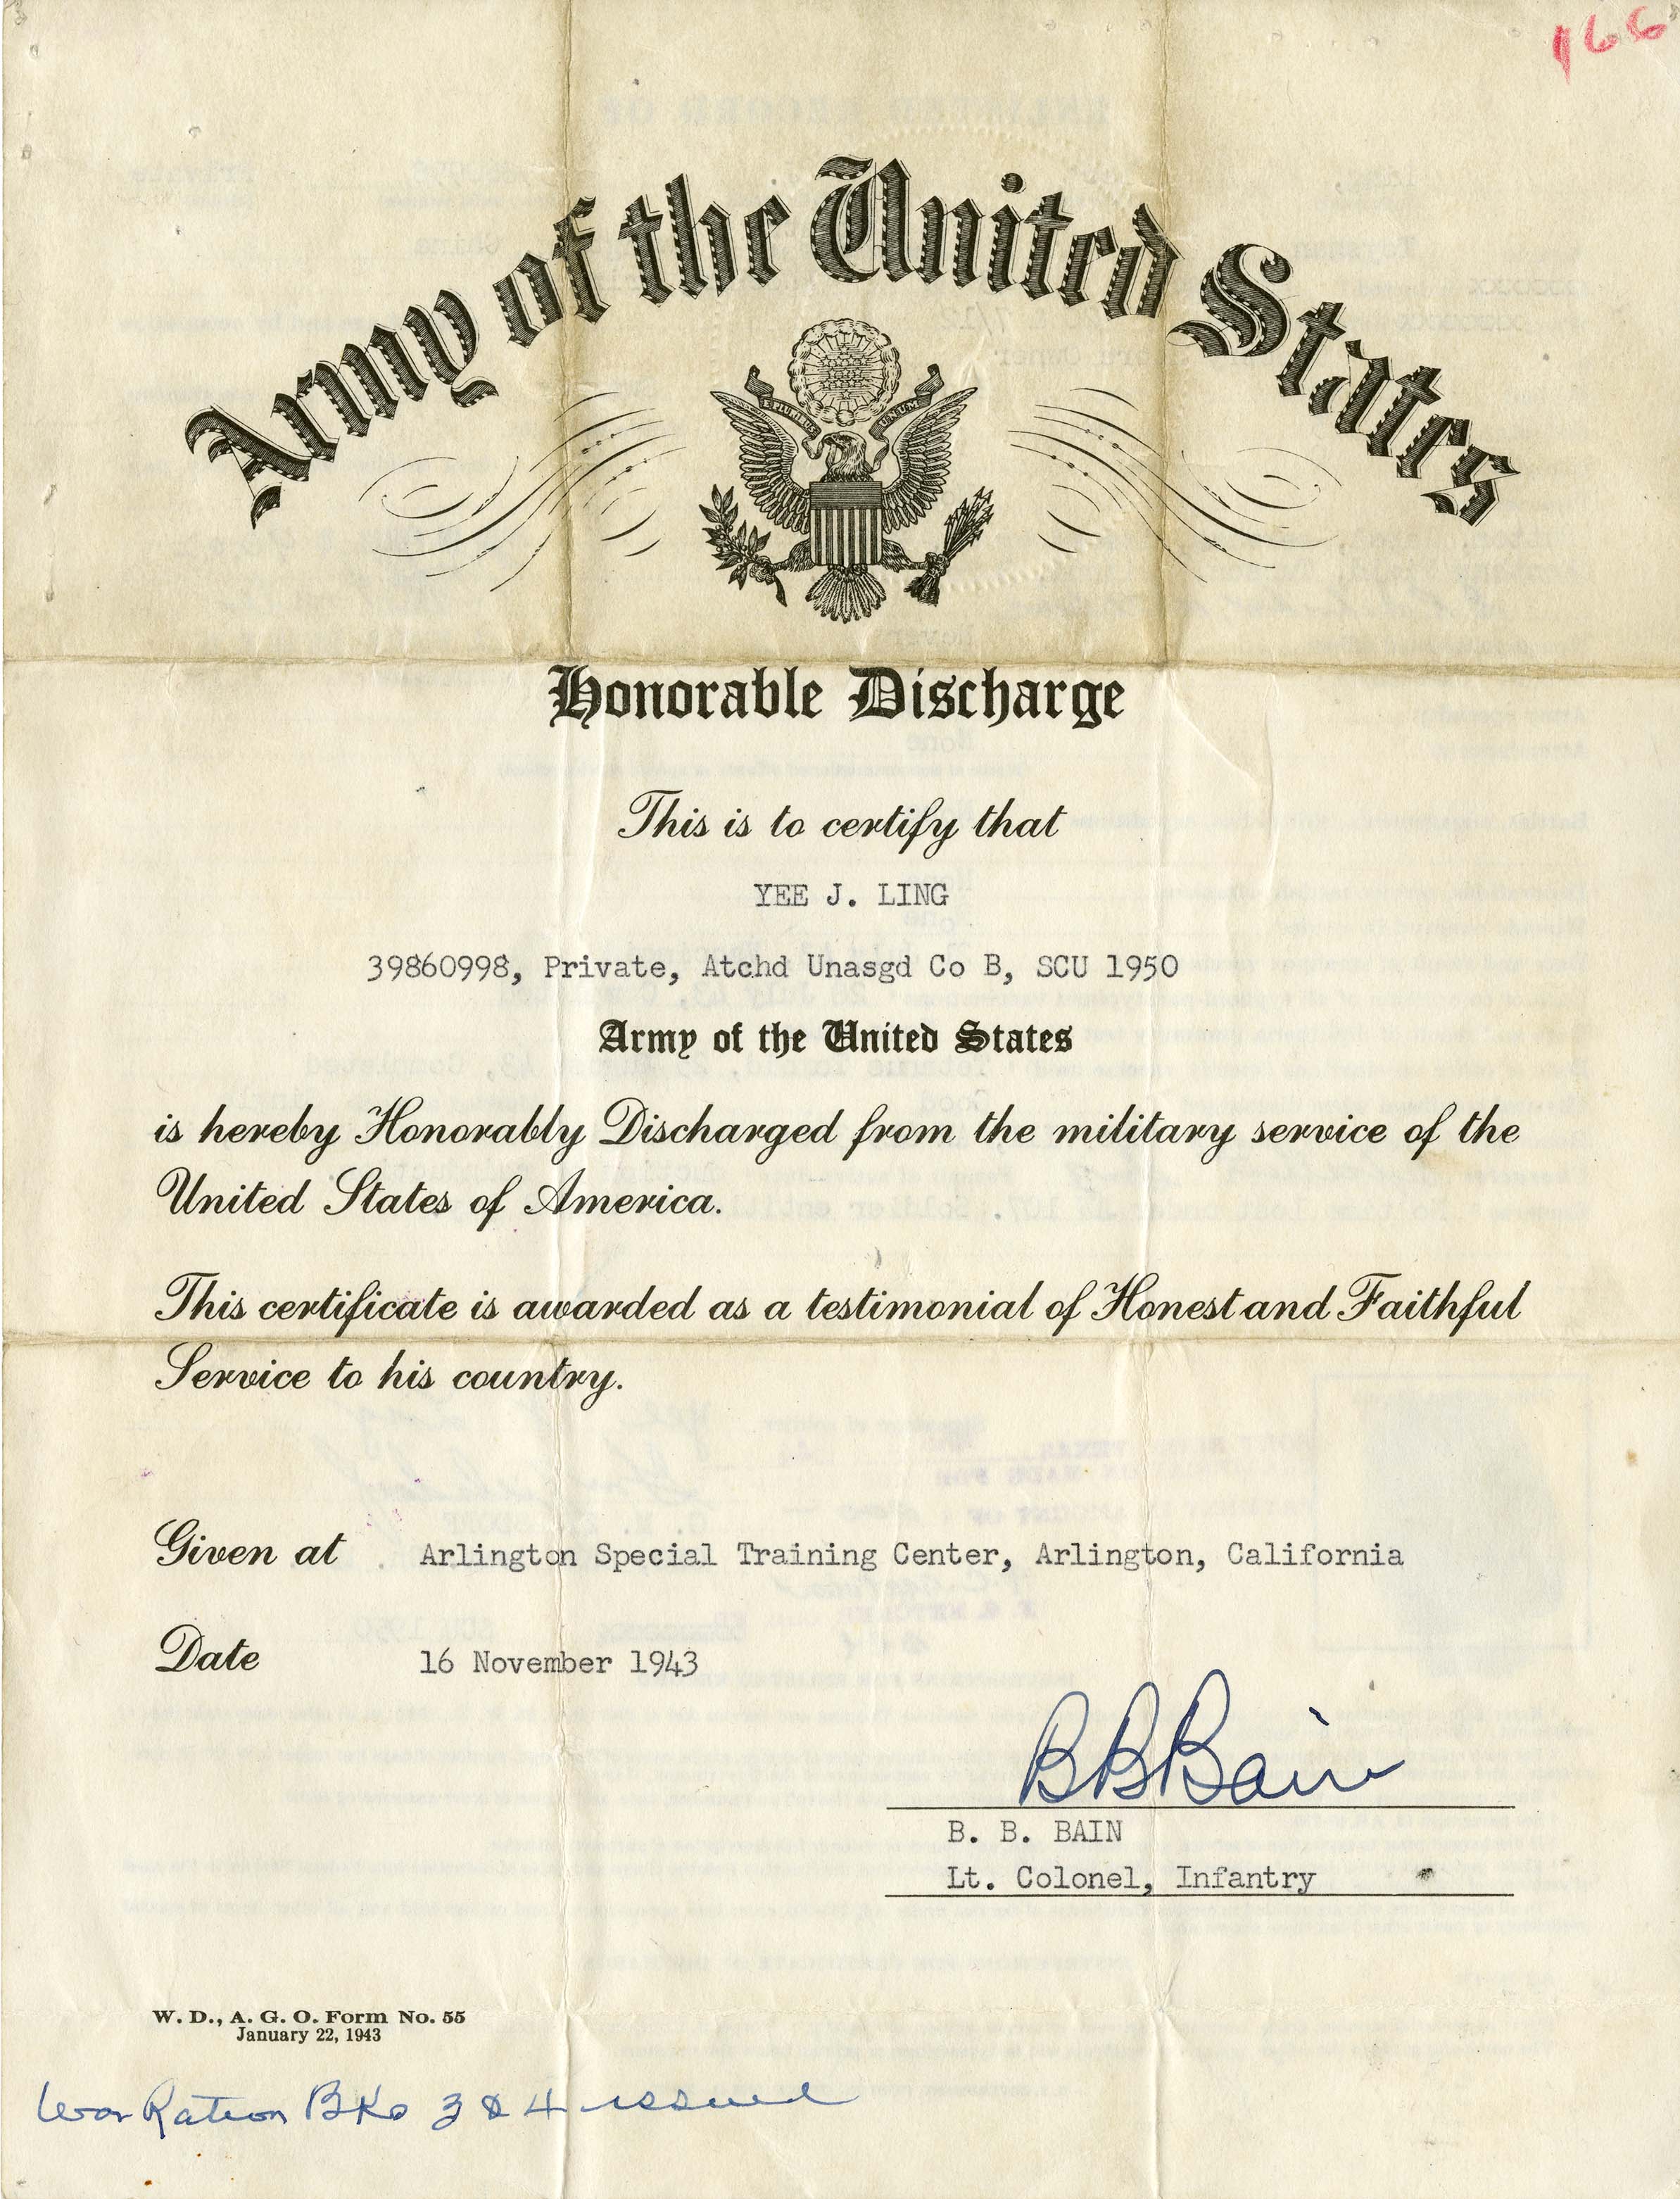 166
Army of the United States
E PLURIBUS UNUM
Honorable Discharge
This is to certify that
YEE J. LING
39860998, Private, Atchd Unasgd Co B, SCU 1950
Army of the United States
is hereby Honorably Discharged from the military service of the
United States of America.
This certificate is awarded as a testimonial of Honest and Faithful
Service to his country.
Given at Arlington Special Training Center, Arlington, California
Date 16 November 1943
B B Bain
B. B. BAIN
Lt. Colonel, Infantry
W. D., A. G. O. Form No. 55
January 22, 1943
War Ration Bks 3 & 4 issued